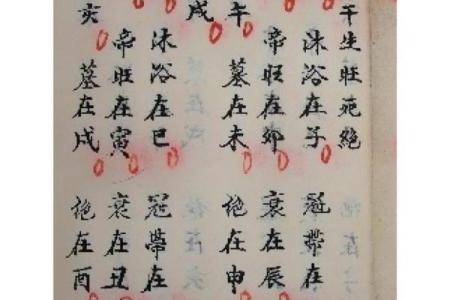 干生旺死絶
沐浴在子 冠帶在
帝旺在卯 衰在辰
午 墓在未 绝在申
戌
沐浴在巳 冠帶在
帝旺在寅 衰在丑
亥 墓在戌 绝在酉